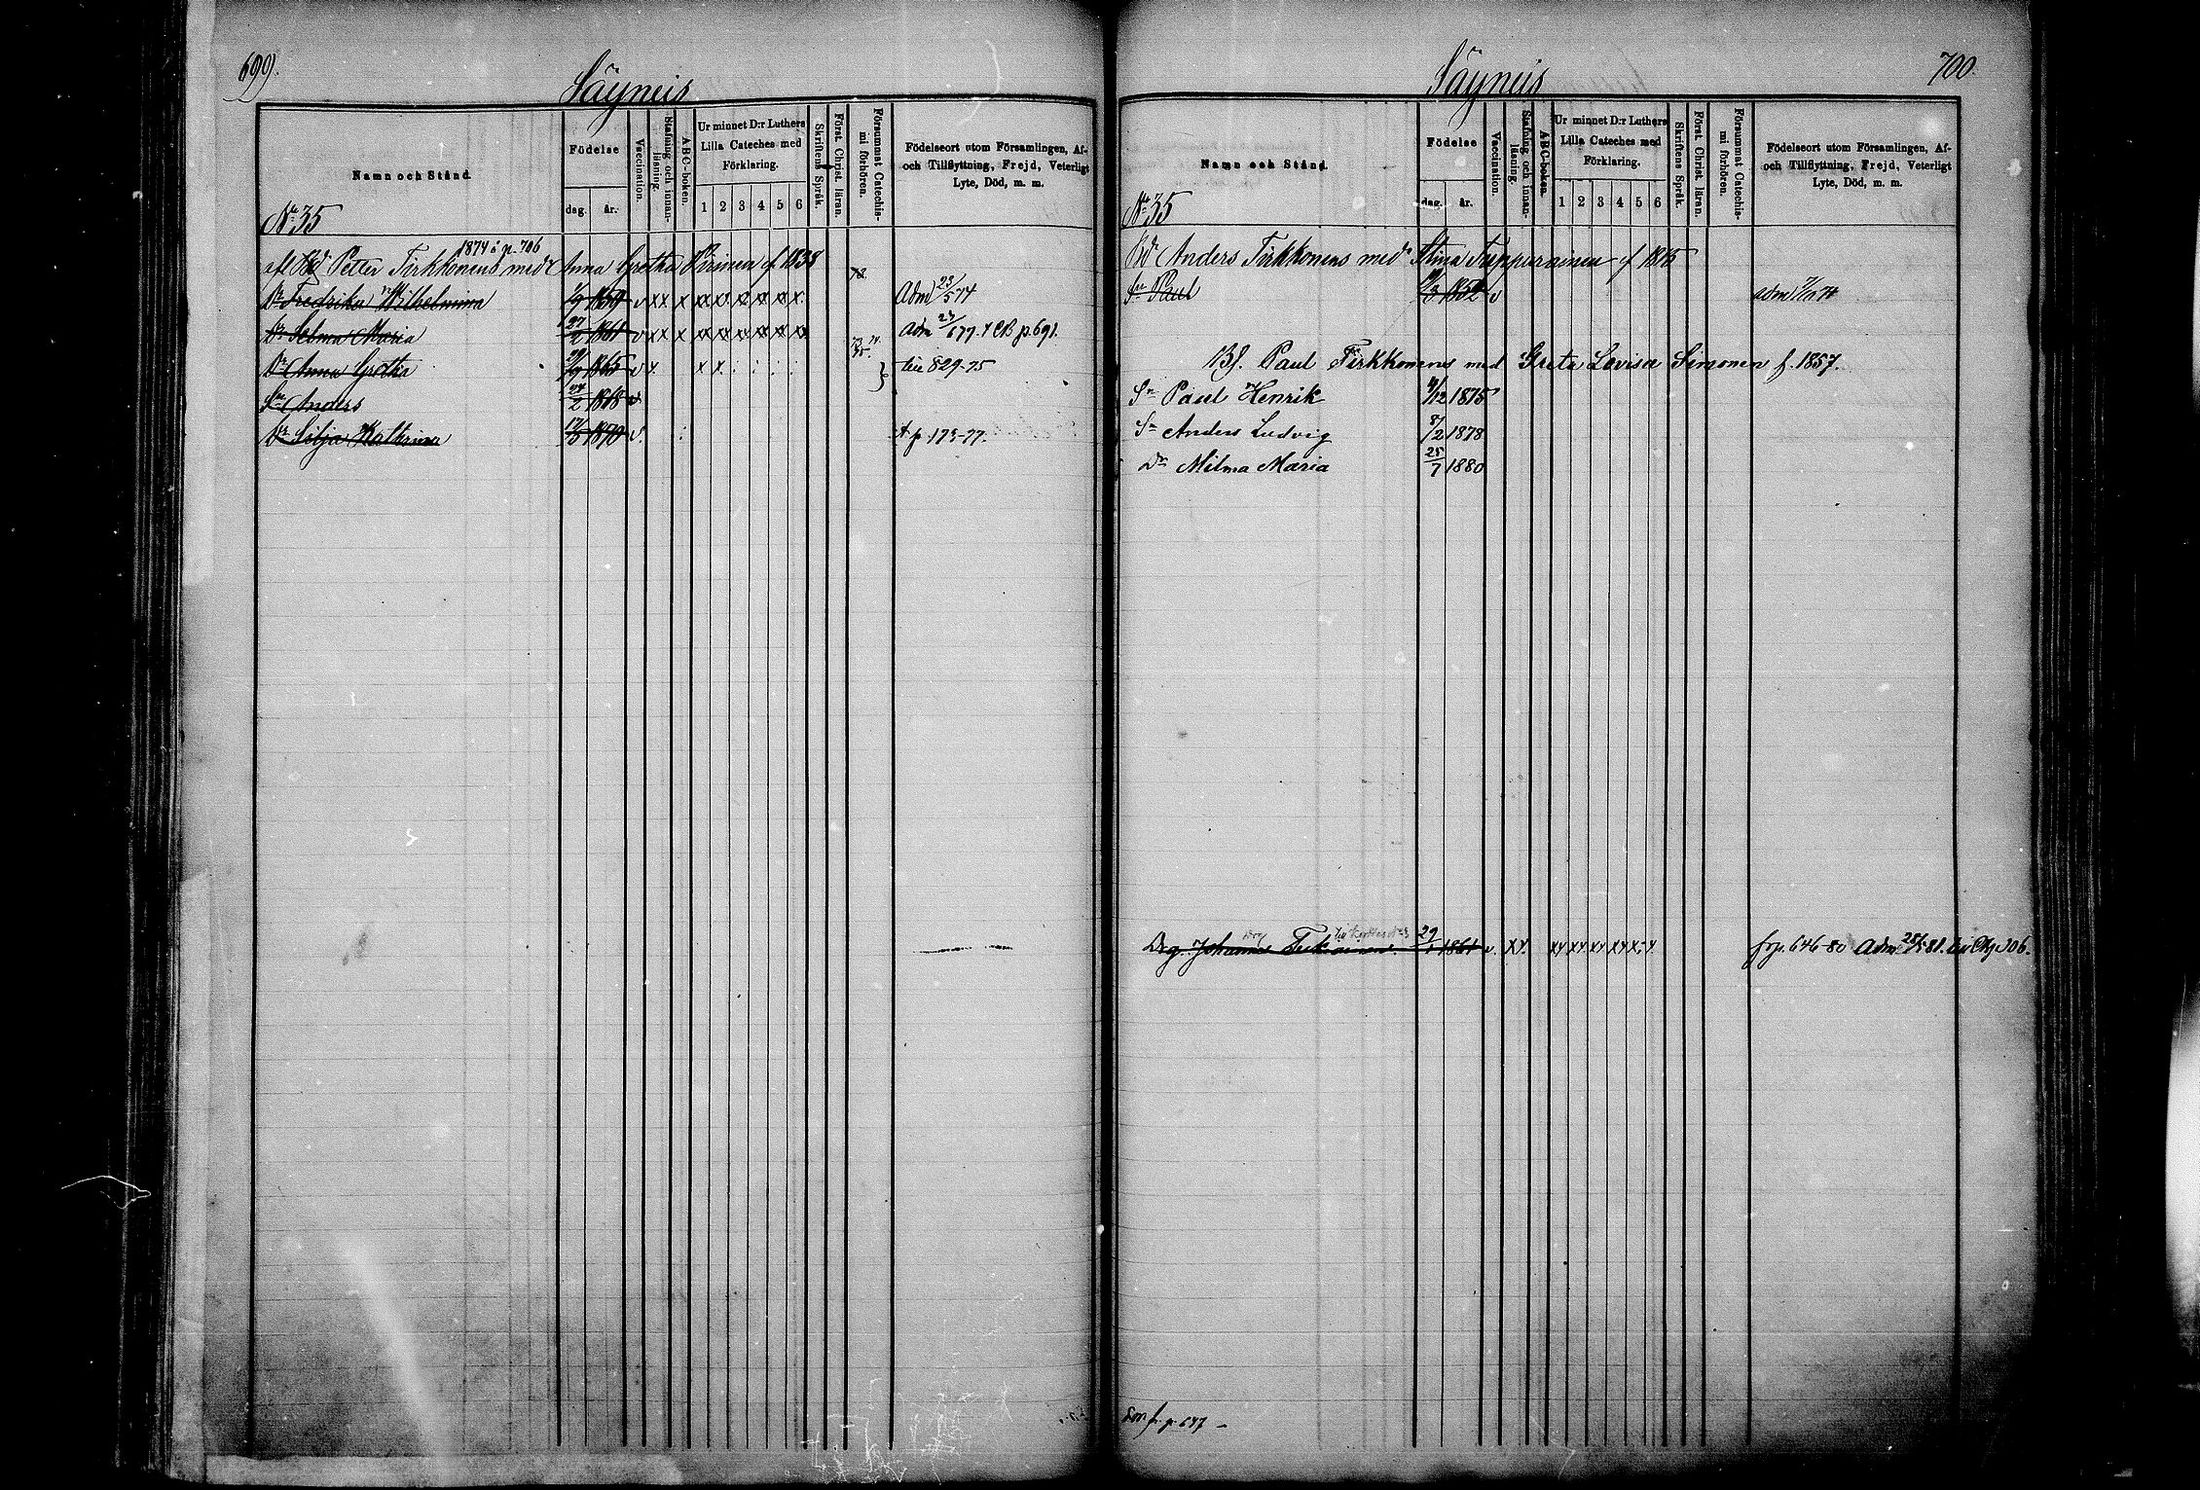 699.
Säyneis
Namn och Stånd.
Födelse
dag. år.
Vaccination.
Stafning och innanläsning.
A B C-boken.
Ur minnet D:r Luthers Lilla Cateches med Förklaring.
1 2 3 4 5 6
Skriftens Språk.
Först. Christ. läran.
Försummat Catechismi förhören.
Födelseort utom Församlingen, Af- och Tillflyttning, Frejd, Veterligt Lyte, Död, m. m.
No 35
1874 i p. 706
afl Bd Petter Tirkkonens med Anna Gretha Pirinen f 1838
Dr Fredrika Wilhelmina 1/9 1859 v x x x x x x x x x Adm 23/5 74
Dr Selma Maria 27/2 1861 v x x x x x x x x x Adm 23/6 77. & CB p. 691.
Dr Anna Gretha 29/9 1865 v x x x till 829-75
Sn Anders 24/2 1868 v
Dr Silja Kathrina 1870 v. † p 173-77.
700.
Säyneis
Namn och Stånd.
Födelse
dag. år.
Vaccination
Stafning och innanläsning.
A B C-boken.
Ur minnet D:r Luthers Lilla Cateches med Förklaring.
1 2 3 4 5 6
Skriftens Språk.
Först. Christ. läran.
Försummat Catechismi förhören.
Födelseort utom Församlingen, Af- och Tillflyttning, Frejd, Veterligt Lyte, Död, m. m.
No 35
Bd Anders Tirkkonens med Stina Tuppurainen f 1815
Sn Paul 1852 v adm
Bf. Paul Tirkkonens med Greta Lovisa Simonen f. 1857.
Sn Paul Henrik 4/12 1875
Sn Anders Ludvig 8/2 1878
Dr Milma Maria 25/7 1880
Drg. Johannes 29/1 1861 v. xx. xx xx xx xx x frp. 646-80 Adm 81.
f. p. 697 –